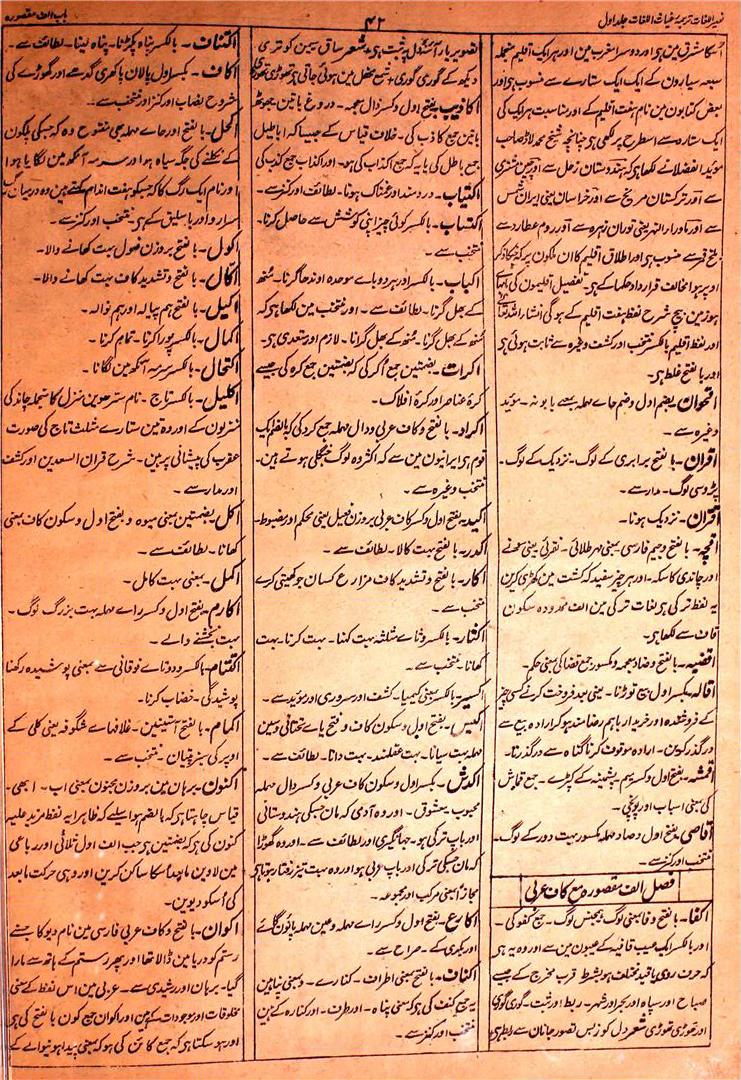 نصیر اللغات ترجمۂ غیاث اللغات جلد اول
۴۲
باب الف مقصورہ
اسکا شرق مین ہی اور دوسرا مغرب مین اور ہر ایک اقلیم منجملہ
سبعہ سیارون کے ایک ایک ستارے سے منسوب ہی اور
بعض کتابون مین نام ہفت اقلیم کے اور مناسبت ہر ایک کی
ایک ستارہ سے اسطرح پر لکھی ہی چنانچہ شیخ محمد لاڈ صاحب
موید الفضلا نے لکھا ہی کہ ہندوستان زحل سے اور چین مشتری
سے اور ترکستان مریخ سے اور خراسان یعنی ایران شمس
سے اور ماوراءالنہر یعنی توران زہرہ سے اور روم عطارد سے
بلخ قمر سے منسوب ہی اور اطلاق اقلیم کا ان ملکون پر
اوپر ہوا مخالف قرارداد حکما کے ہی تفصیل اقلیمون کی
ہوزمین بیچ شرح لفظ ہفت اقلیم کے ہوگی انشاء اللہ تعالے
اور لفظ اقلیم بالکسر منتخب اور کشف وغیرہ سے ثابت ہوئی ہی
اور بالفتح غلط ہی۔
اقحوان۔ بضم اول و ضم حاے مہملہ بمعنی بابونہ۔ موید
وغیرہ سے۔
اقران۔ بالفتح برابری کے لوگ۔ نزدیک کے لوگ۔
پڑوسی لوگ۔ مدار سے۔
اقران۔ نزدیک ہونا۔
اقچہ۔ بالفتح و جیم فارسی بمعنی مہر طلائی۔ نقرئی یعنی سونے
اور چاندی کا سکہ۔ اور ہر چیز سفید کہ کشت مین کھڑی کرین
یہ لفظ ترکی ہی لغات ترکی مین الف ممدودہ سکون
قاف سے لکھا ہی۔
اقضیہ۔ بالفتح و ضاد معجمہ مکسور جمع قضا کی بمعنی حکم۔
اقالہ۔ بکسر اول بیع توڑنا۔ یعنی بعد فروخت کرنے کسی چیز
کے فروشندہ اور خریدار باہم رضامند ہوکر ارادہ بیع سے
درگذر کرین۔ ارادہ موقوف کرنا گناہ سے درگذرنا۔
اقمشہ۔ بفتح اول و کسر میم پشمینہ کے کپڑے۔ جمع قماش
کی بمعنی اسباب اور پونجی۔
اقاصی۔ بفتح اول و صاد مہملہ مکسور بہت دور کے لوگ۔
منتخب اور کنز سے۔
فصل الف مقصورہ مع کاف عربی
اکفا۔ بالفتح و فا بمعنی لوگ ہمجنس لوگ۔ جمع کفو کی۔
اور بالکسر ایک عیب قافیہ کے عیبون مین سے اور وہ یہ ہی
کہ حرف روی با قید مختلف ہو بشرط قرب مخرج کے جیسے
صباح اور سپاہ اور بحر اور شہر۔ ربط اور ثبت۔ گوری گوری
اور تھوڑی تھوڑی شعر دل کو زبس تصور جانان سے ربط ہی
تصویر یار آئنہ دل پہ ثبت ہی شعر ساق سیمین کو تری
دیکھ کے گوری گوری شمع محفل مین ہوئی جاتی ہی تھوڑی تھوڑی
اکاذیب۔ بفتح اول و کسر ذال معجمہ۔ دروغ باتین جھوٹھ
باتین جمع کاذب کی۔ خلاف قیاس کے جیسا کہ اباطیل
جمع باطل کی یا یہ کہ جمع اکذاب کی ہو۔ اور اکذاب جمع کذب کی
اکتیاب۔ دردمند اور غمناک ہونا۔ لطائف اور کنز سے۔
اکتساب۔ بالکسر کوئی چیز اپنی کوشش سے حاصل کرنا۔
منتخب سے۔
اکباب۔ بالکسر اور ہر دو باے موحدہ اوندھا گرنا۔ منھ
کے بھل گرنا۔ لطائف سے۔ اور منتخب مین لکھا ہی کہ
منھ کے بھل گرنا۔ منھ کے بھل گرانا۔ لازم اور متعدی ہی۔
اکرات۔ بضمتین جمع اکر کی کہ بضمتین جمع کرہ کی جیسے
کرۂ عناصر اور کرۂ افلاک۔
اکراد۔ بالفتح و کاف عربی و دال مہملہ جمع کرد کی کہ بالضم ایک
قوم ہی ایرانیون مین سے کہ اکثر وہ لوگ جنگلی ہوتے ہین۔
منتخب وغیرہ سے۔
اکید۔ بفتح اول و کسر کاف عربی بروزن فعیل یعنی محکم اور مضبوط۔
اکدر۔ بالفتح بہت کالا۔ لطائف سے۔
اکار۔ بالفتح و تشدید کاف مزارع کسان جو کھیتی کرے
منتخب سے۔
اکثار۔ بالکسر و ثاے مثلثہ بہت کہنا۔ بہت کرنا۔ بہت
کھانا۔ منتخب سے۔
اکسیر۔ بالکسر بمعنی کیمیا۔ کشف اور سروری اور موید سے۔
اکیس۔ بفتح اول و سکون کاف و فتح یاے تحتانی و سین
مہملہ بہت سیانا۔ بہت عقلمند۔ بہت دانا۔ لطائف سے۔
اکدش۔ بکسر اول و سکون کاف عربی و کسر دال مہملہ
محبوب معشوق۔ اور وہ آدمی کہ مان جسکی ہندوستانی
اور باپ ترکی ہو۔ جہانگیری اور لطائف سے۔ اور وہ گھوڑا
کہ مان جسکی ترکی اور باپ عربی ہو اور وہ بہت تیز رفتار ہوتا ہی
مجازاً بمعنی مرکب اور مجموعہ۔
اکارع۔ بفتح اول و کسر راے مہملہ و عین مہملہ پانون گائے
اور بکری کے۔ صراح سے۔
اکناف۔ بالفتح بمعنی اطراف۔ کنارے۔
یہ جمع کنف کی ہو کہ بمعنی پناہ۔ اور طرف۔ اور کنارہ کے ہین
منتخب اور کنز سے۔
اکتناف۔ بالکسر پناہ پکڑنا۔ پناہ لینا۔ لطائف سے۔
اکاف۔ بکسر اول پالان پاکھری گدھے اور گھوڑے کی
شروح نصاب اور کنز اور منتخب سے۔
اکحل۔ بالفتح اور حاے مہملہ بھی مفتوح وہ کہ جسکی پلکون
کے نکلنے کی جگہ سیاہ ہو اور سرمہ آنکھ مین لگایا ہوا
اور نام ایک رگ کا کہ جسکو ہفت اندام کہتے ہین وہ درمیان
اور باسلیق کے ہی۔ منتخب اور کنز سے۔
اکول۔ بالفتح بروزن فعول بہت کھانے والا۔
اکال۔ بالفتح و تشدید کاف بہت کھانے والا۔
اکیل۔ بالفتح ہم پیالہ اور ہم نوالہ۔
اکمال۔ بالکسر پورا کرنا۔ تمام کرنا۔
اکتحال۔ بالکسر سرمہ آنکھ مین لگانا۔
اکلیل۔ بالکسر تاج۔ نام سترھوین منزل کا منجملہ چاند کی
منزلون کے اور وہ تین ستارے مثلث تاج کی صورت
عقرب کی پیشانی پر ہین۔ شرح قران السعدین اور کشف
اور مدار سے۔
اکل۔ بضمتین بمعنی میوہ و بفتح اول و سکون کاف بمعنی
کھانا۔ لطائف سے۔
اکمل۔ بمعنی بہت کامل۔
اکارم۔ بفتح اول و کسر راے مہملہ بہت بزرگ لوگ۔
بہت بخشنے والے۔
اکتتام۔ بالکسر و دو تاے فوقانی سے بمعنی پوشیدہ رکھنا
پوشیدگی۔ خضاب کرنا۔
اکمام۔ بالفتح آستینین۔ غلافہاے شگوفہ یعنی کلی کے
اوپر کی سبز پتیان۔ منتخب سے۔
اکنون۔ برہان مین بروزن مجنون بمعنی اب۔ ابھی۔
قیاس چاہتا ہی کہ بالضم ہو اسیلے کہ ظاہرا یہ لفظ مزید علیہ
کنون کی ہی کہ بضمتین ہی جب الف اول ثلاثی اور رباعی
مین لاوین مابعد اسکا ساکن کرین اور وہی حرکت مابعد
کی اسکو دیوین۔
اکوان۔ بالفتح و کاف عربی فارسی مین نام دیو کا جسنے
رستم کو دریا مین ڈالا تھا اور پھر رستم کے ہاتھ سے مارا
گیا۔ برہان اور رشیدی سے۔ عربی مین اس لفظ کے معنی
مخلوقات اور موجودات کے ہین اور اکوان جمع کون بالفتح کی ہی
اور ہو سکتا ہی کہ جمع کائن کی ہو کہ بمعنی پیدا ہونیوالے کے